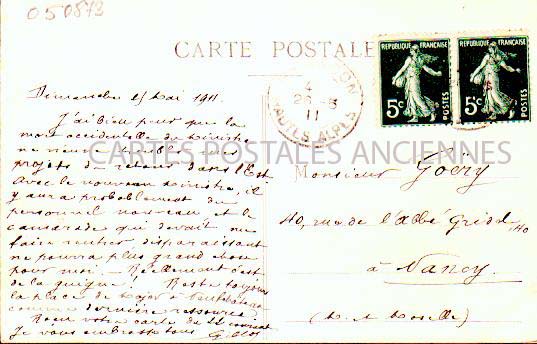 050873
CARTE POSTALE
REPUBLIQUE FRANÇAISE
5c
POSTES
REPUBLIQUE FRANÇAISE
5c
POSTES
HAUTES ALPES
11
CARTES POSTALES ANCIENNES
Dimanche Mai 1911
J'ai bien peur que la
mort accidentelle du ministre
ne
projets de retour dans l'Est
Avec le nouveau ministre, il
y aura probablement du
personnel nouveau, et le
camarade qui devait me
faire rentrer, disparaissant
ne pourra plus grand chose
pour moi. — Réellement c'est
de la guigne! Reste toujours
la place de major à
comme dernière ressource
Reçu votre carte du 22 courant
Je vous embrasse tous
Monsieur Goëry
40, rue de l'abbé Gridel, 40
à Nancy.
(M. et Moselle)